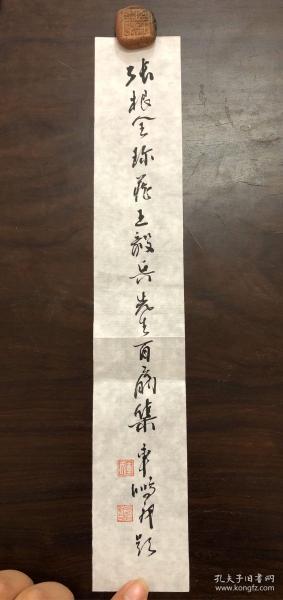 张根全珍藏王毅兵先生百扇集
車鹏飛題
孔夫子旧书网
www.kongfz.com